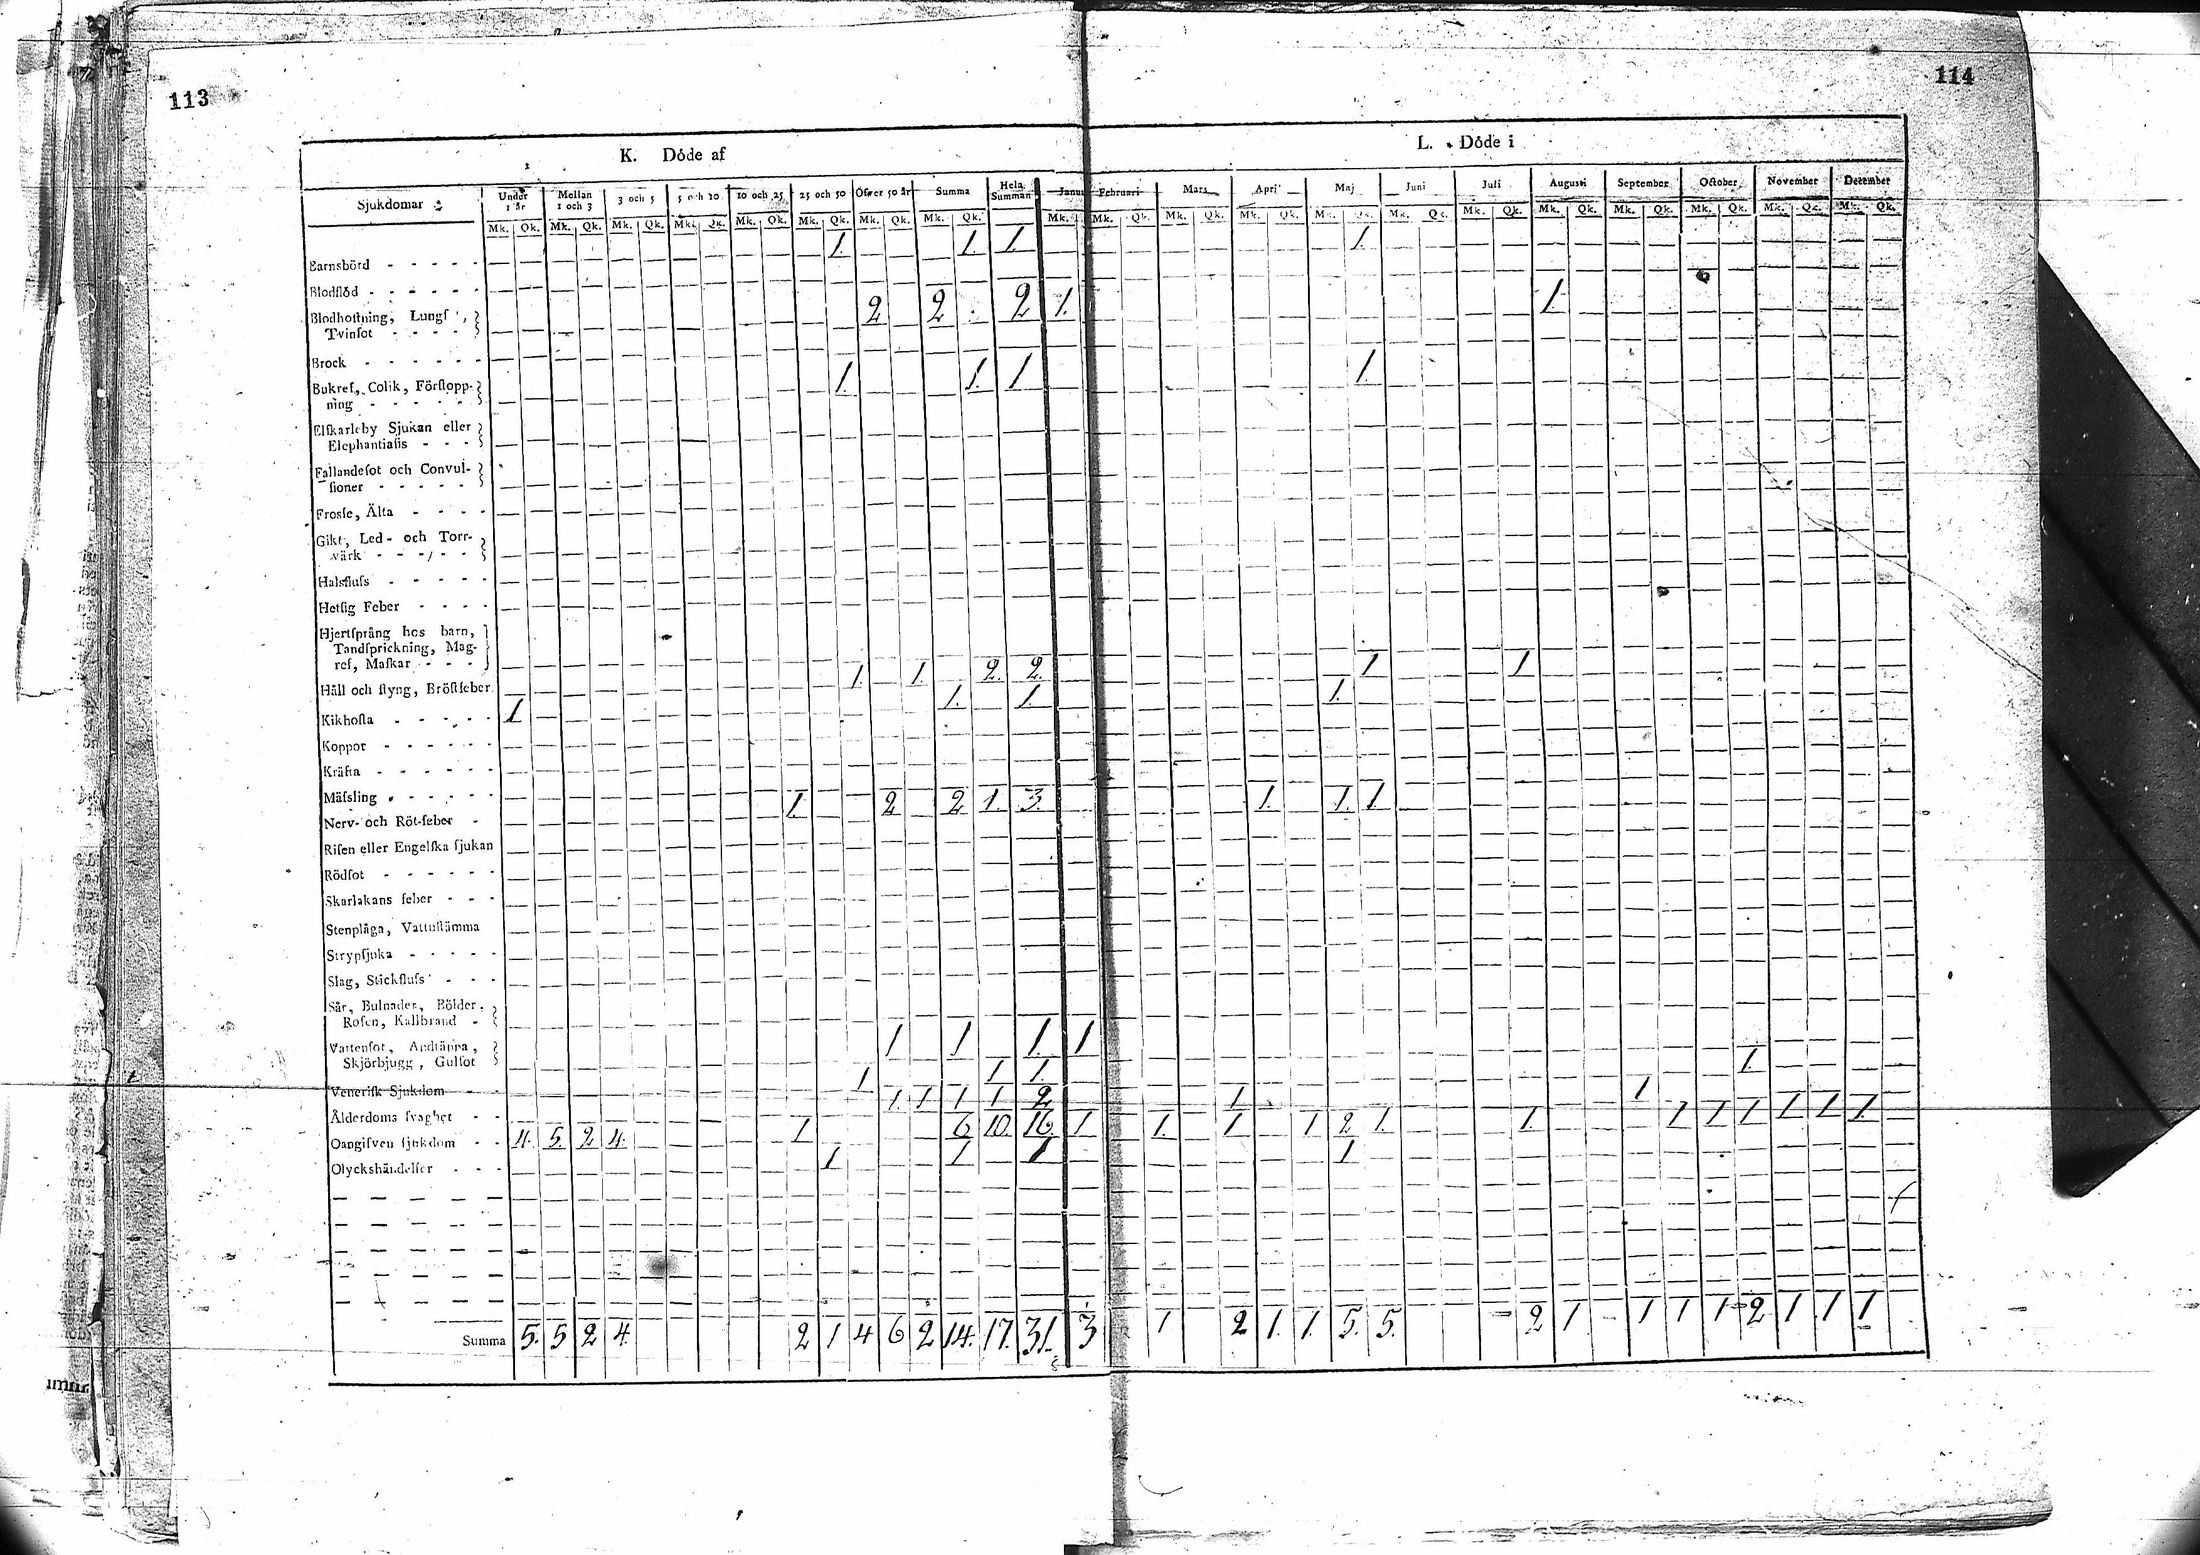 113
114
K. Döde af
L. Döde i
Sjukdomar
Under 1 år
Mellan 1 och 3
3 och 5
5 och 10
10 och 25
25 och 50
Öfver 50 år
Summa
Hela Summan
Februari
Mars
April
Maj
Juni
Juli
Augusti
September
October
November
December
Mk. Qk. Mk. Qk. Mk. Qk. Mk. Qk. Mk. Qk. Mk. Qk. Mk. Qk. Mk. Qk. Mk. Mk. Qk. Mk. Qk. Mk. Qk. Mk. Qk. Mk. Qk. Mk. Qk. Mk. Qk. Mk. Qk. Mk. Qk. Mk. Qk. Mk. Qk.
Barnsbörd - - - - - 1. 1. 1 1.
Blodflöd - - - - - -
Blodhostning, Lungs
Tvinsot - - - - 2 2 2 1. 1.
Brock - - - - - -
Bukref, Colik, Förstopp-
ning - - - - - 1. 1. 1 1.
Elfkarleby Sjukan eller
Elephantiasis - - -
Fallandesot och Convul-
sioner - - - - -
Frosse, Älta - - - -
Gikt, Led- och Torr-
värk - - - - -
Halsfluss - - - - -
Hetsig Feber - - - -
Hjertsprång hos barn,
Tandsprickning, Mag-
ref, Maskar - - -
Håll och styng, Bröstfeber 1. 1. 2. 2. 1 1.
Kikhosta - - - - - 1 1. 1. 1.
Koppor - - - - - -
Kräfta - - - - - -
Mässling - - - - - -
Nerv- och Röt-feber - 1. 2 2 1. 3. 1. 1. 1
Risen eller Engelska sjukan
Rödsot - - - - - -
Skarlakans feber - - -
Stenplåga, Vattustämma
Strypsjuka - - - - -
Slag, Stickfluss - - -
Sår, Bulnader, Bölder
Rosen, Kallbrand -
Vattensot, Andtäppa,
Skjörbjugg, Gulsot 1 1 1 1
Venerisk Sjukdom - - 1. 1 1. 1.
Ålderdoms svaghet - - 1. 1 1 1 2 1 1
Oangifven sjukdom - - 4. 5. 2 4. 1 6 10. 16 1 1. 1 1 2 1. 1. 1 1 1 1 1 1.
Olyckshändelser - - - 1 1 1 1
Summa 5. 5 2 4. 2 1 4 6 2 14. 17. 31. 3 1 2 1. 1. 5. 5. 2 1 1 1 1 2 1 1 1